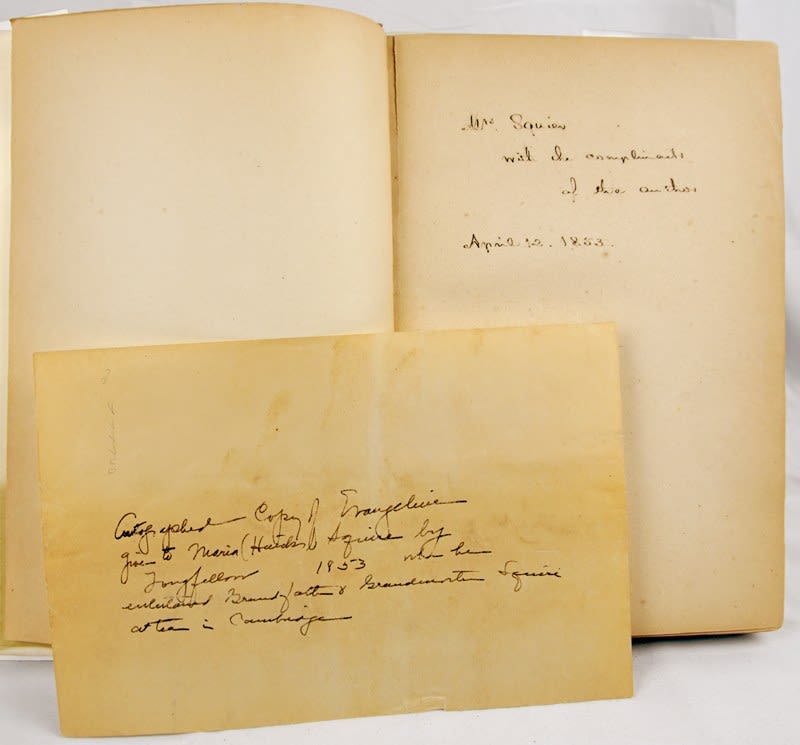 Mrs. Squier
with the compliments
of the author
April 12. 1853.
Autographed Copy of Evangeline
given to Maria ( Squire by
Longfellow 1853 when he
entertained Grandfather & Grandmother Squire
at tea in Cambridge